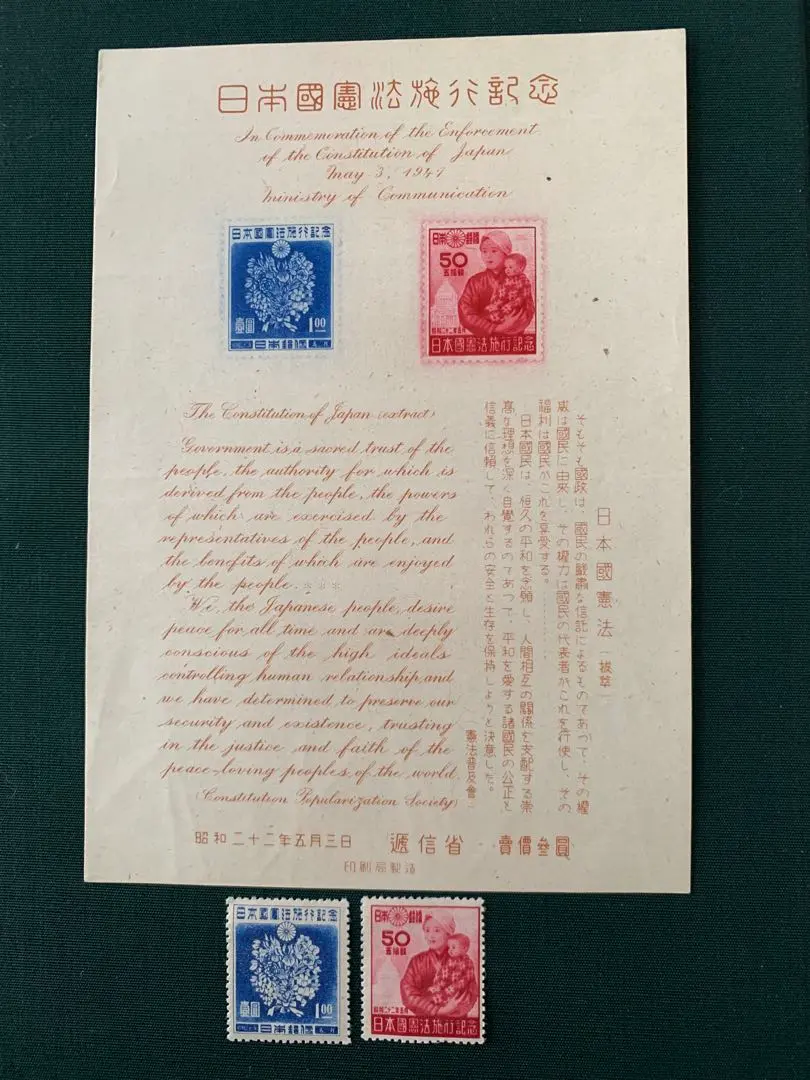 日本國憲法施行記念
In Commemoration of the Enforcement
of the Constitution of Japan
May 3, 1947
Ministry of Communication
日本國憲法施行記念
壹圓
1.00
日本郵便
日本郵便
50
五拾錢
昭和二十二年五月
日本國憲法施行記念
The Constitution of Japan (extract)
Government is a sacred trust of the
people, the authority for which is
derived from the people, the powers
of which are exercised by the
representatives of the people, and
the benefits of which are enjoyed
by the people. ※※※
We, the Japanese people, desire
peace for all time and are deeply
conscious of the high ideals
controlling human relationship, and
we have determined to preserve our
security and existence, trusting
in the justice and faith of the
peace-loving peoples of the world.
(Constitution Popularization Society)
日本國憲法 ー拔萃ー
そもそも國政は、國民の嚴肅な信託によるものであつて、その權
威は國民に由來し、その權力は國民の代表者がこれを行使し、その
福利は國民がこれを享受する。
日本國民は、恒久の平和を念願し、人間相互の關係を支配する崇
高な理想を深く自覺するのであつて、平和を愛する諸國民の公正と
信義に信賴して、われらの安全と生存を保持しようと決意した。
憲法普及會
昭和二十二年五月三日 遞信省 賣價參圓
印刷局製造
日本國憲法施行記念
壹圓
1.00
日本郵便
日本郵便
50
五拾錢
昭和二十二年五月
日本國憲法施行記念